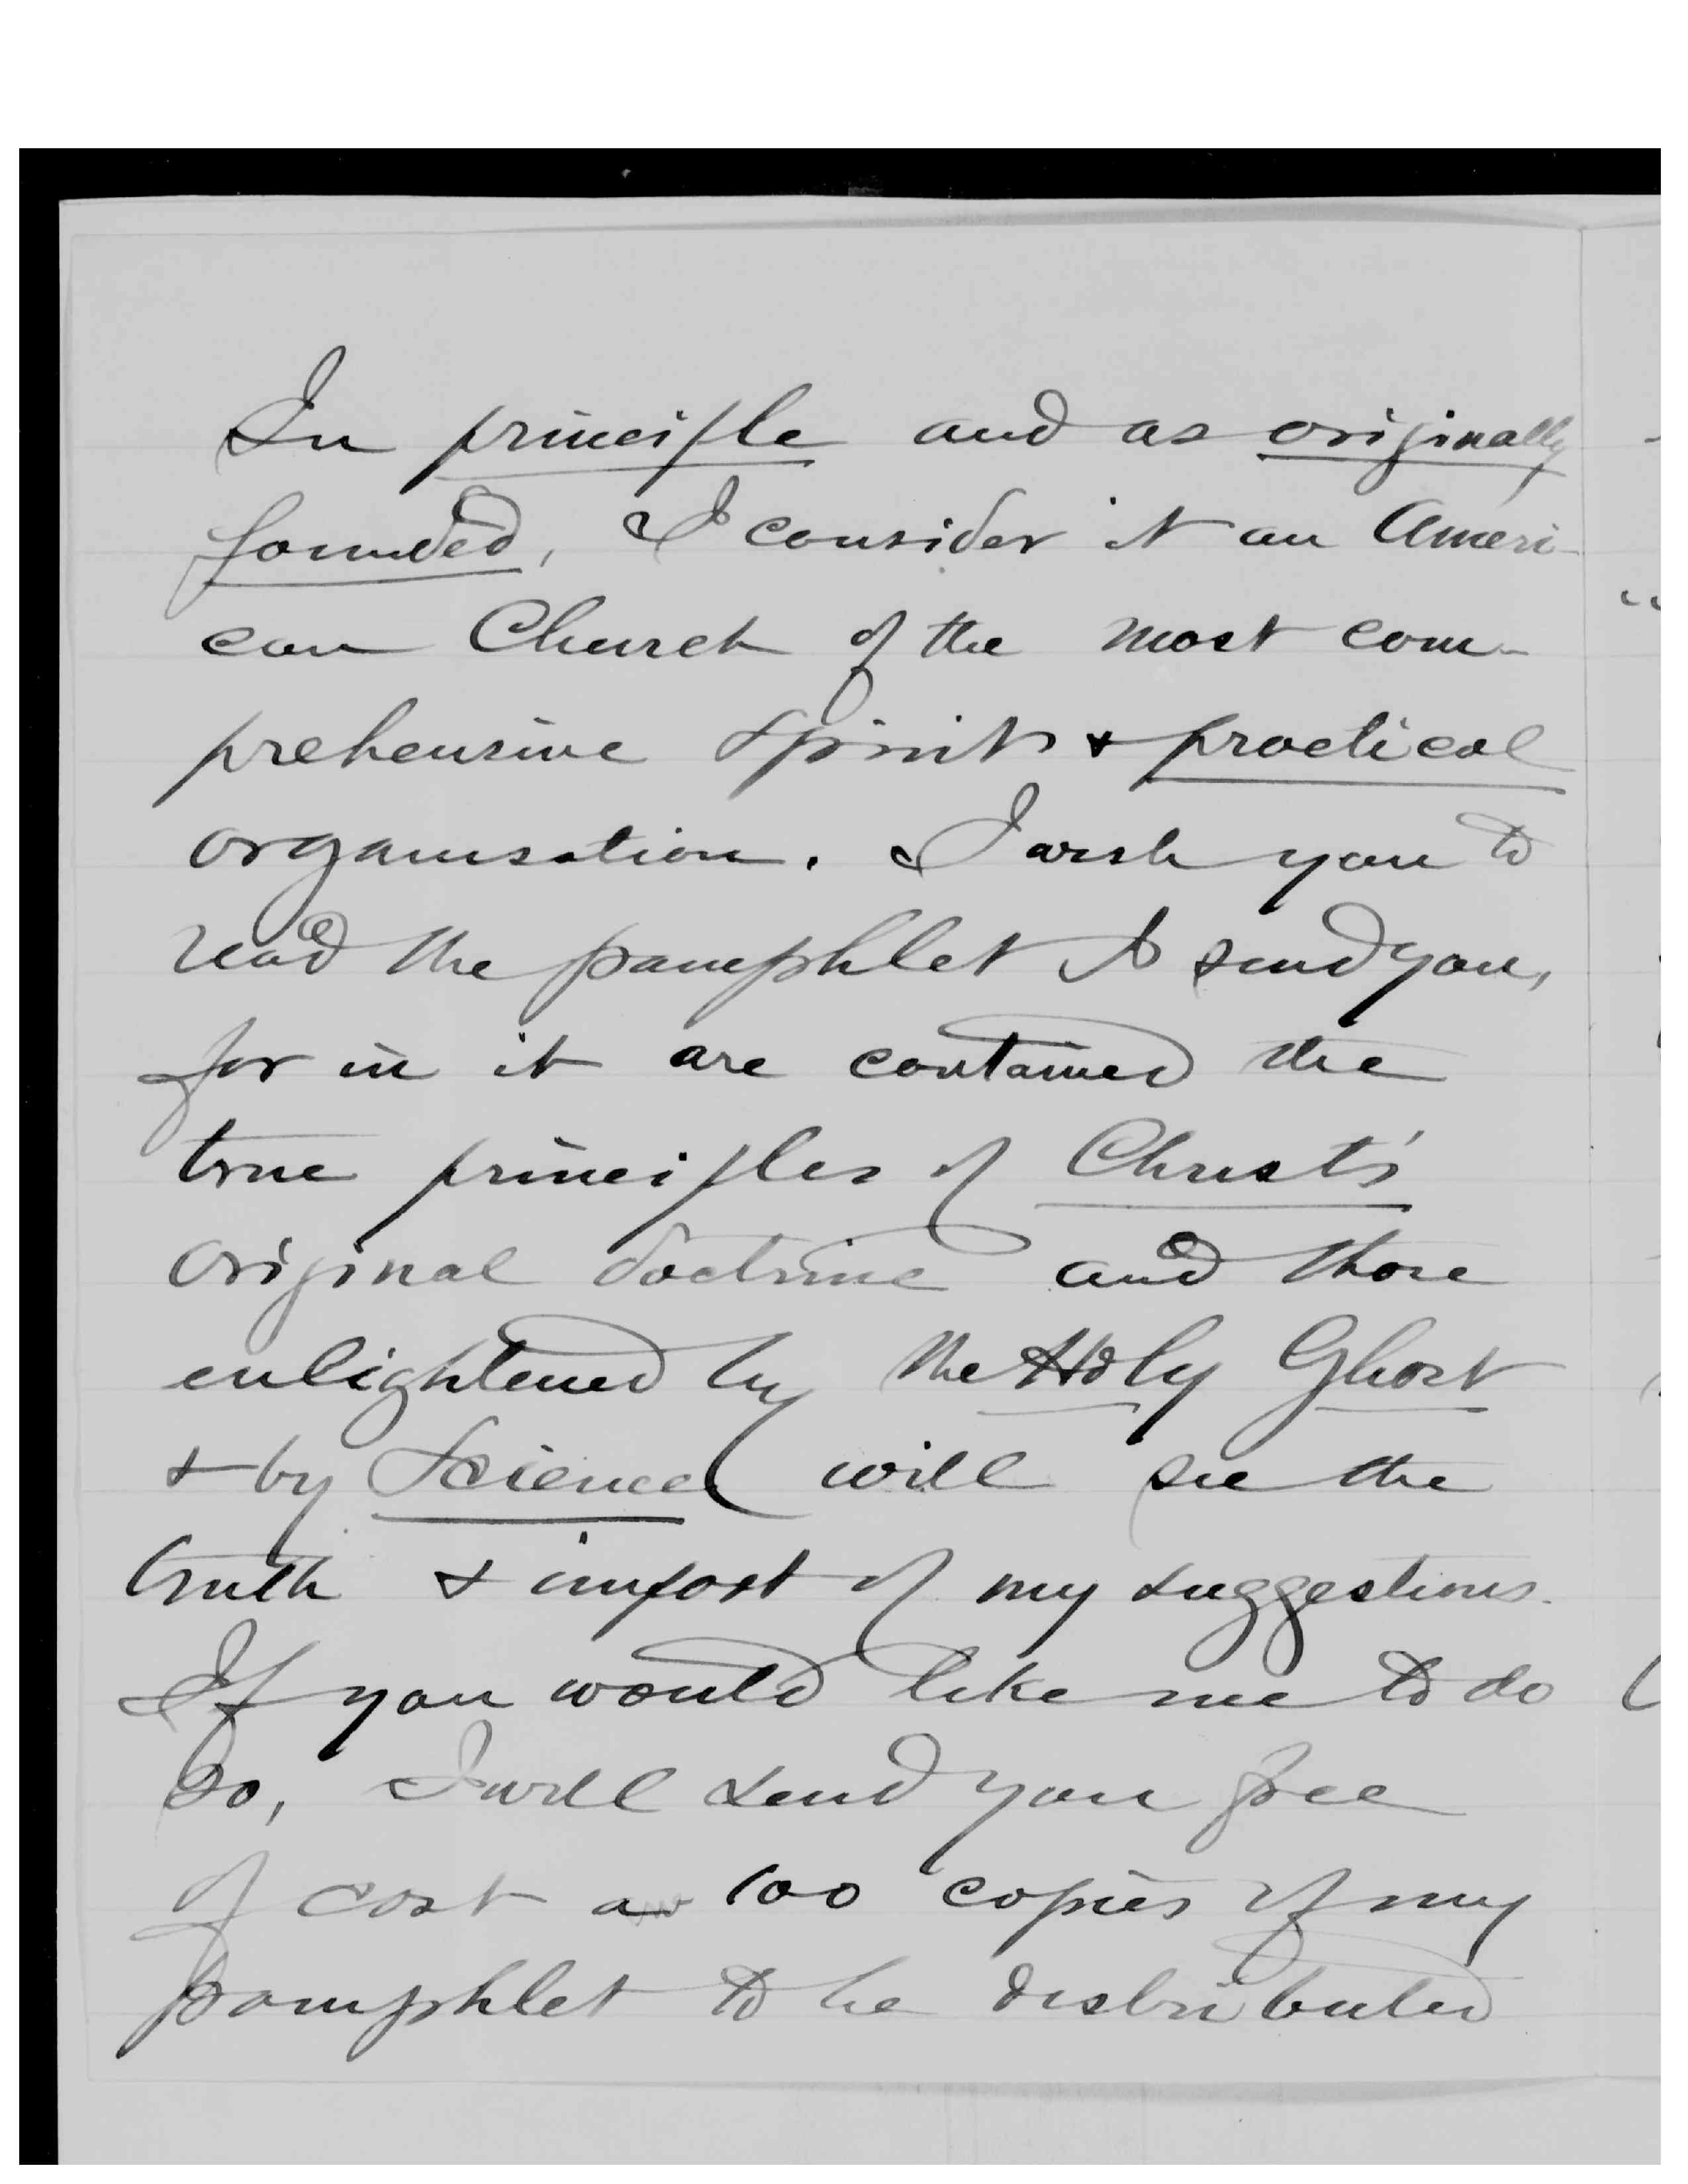 In principle and as originally
founded, I consider it an Ameri-
can Church of the most com-
prehensive spirit & practical
organisation. I wish you to
read the pamphlet I send you,
for in it are contained the
true principles of Christ's
original doctrine and those
enlightened by the Holy Ghost
& by Science will see the
truth & import of my suggestions.
If you would like me to do
so, I will send you free
of cost a 100 copies of my
pamphlet to be distributed